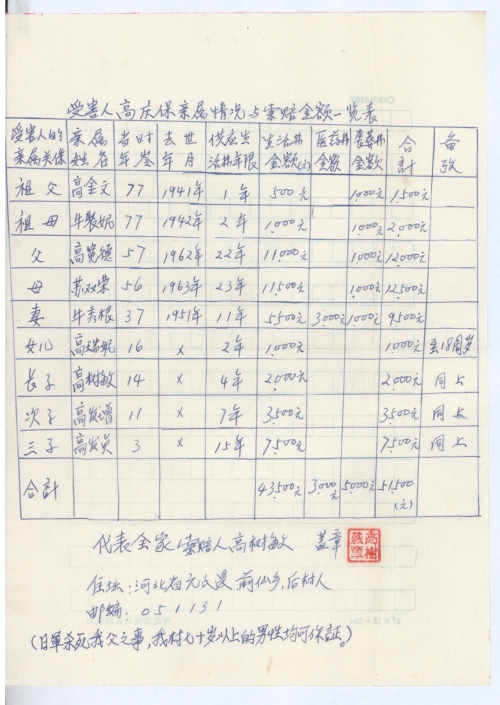 受害人高庆保亲属情况与索赔金额一览表
受害人的亲属关係 亲属姓名 当时年岁 去世年月 供应生活费年限 生活费金额(元) 医药费金额 丧葬费金额 合計 备攷
祖父 高金文 77 1941年 1年 500元 1000元 1,500元
祖母 牛 77 1942年 2年 1,000元 1000元 2,000元
父 高宽德 57 1962年 22年 11,000元 1000元 12,000元
母 苏双荣 56 1963年 23年 11,500元 1000元 12,500元
妻 牛秀根 37 1951年 11年 5,500元 3,000元 1,000元 9,500元
女儿 高 16 × 2年 1,000元 1000元 至18周岁
长子 高树敏 14 × 4年 2,000元 2,000元 同上
次子 高发增 11 × 7年 3,500元 3,500元 同上
三子 高发贞 3 × 15年 7,500元 7,500元 同上
合計 43,500元 3,000元 5,000元 51,500(元)
代表全家索赔人高树敏 盖章
住址:河北省元氏县前仙乡,后村人
邮编:051131
(日軍杀死我父之事,我村七十岁以上的男性均可保証。)